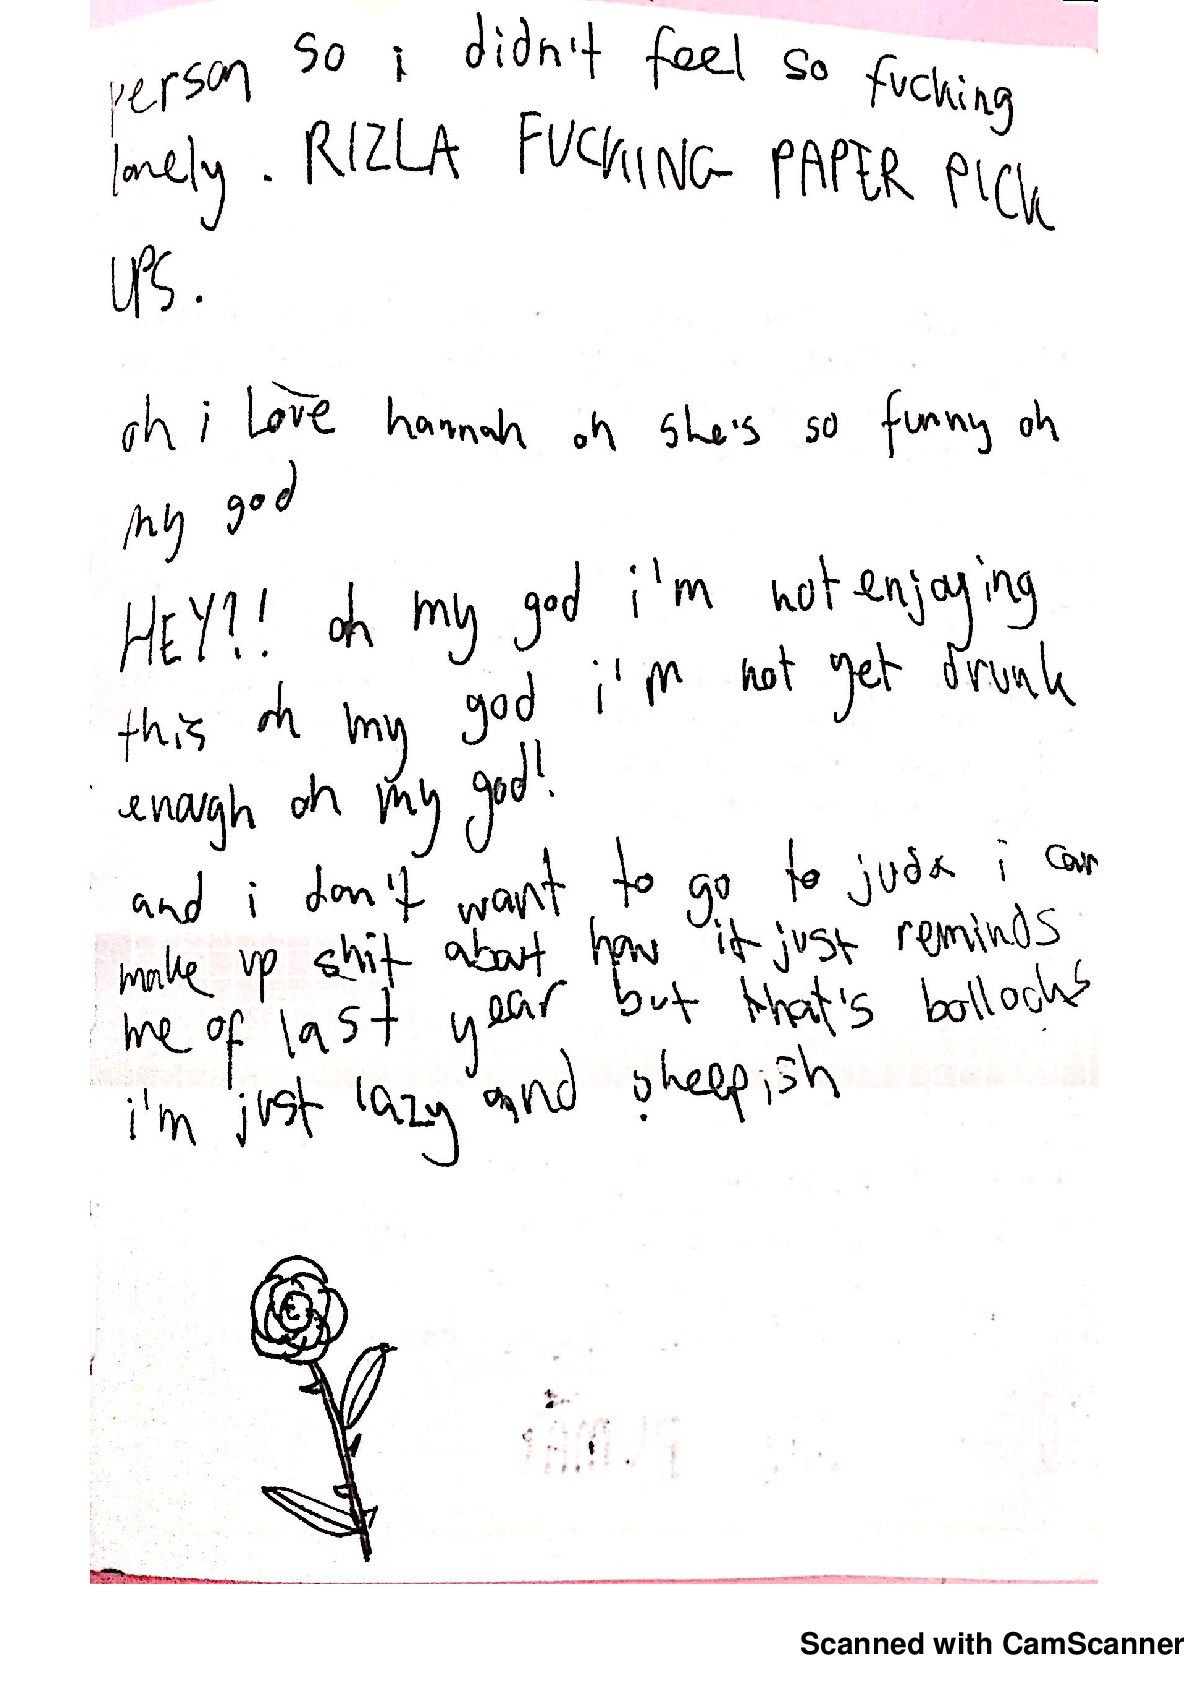 person so i didn't feel so fucking
lonely. RIZLA FUCKIING PAPER PICK
UPS.
oh i love hannah oh she's so funny oh
my god
HEY?! oh my god i'm not enjoying
this oh my god i'm not get drunk
enough oh my god!
and i don't want to go to juda i can
make up shit about how it just reminds
me of last year but that's bollocks
i'm just lazy and sheepish
Scanned with CamScanner